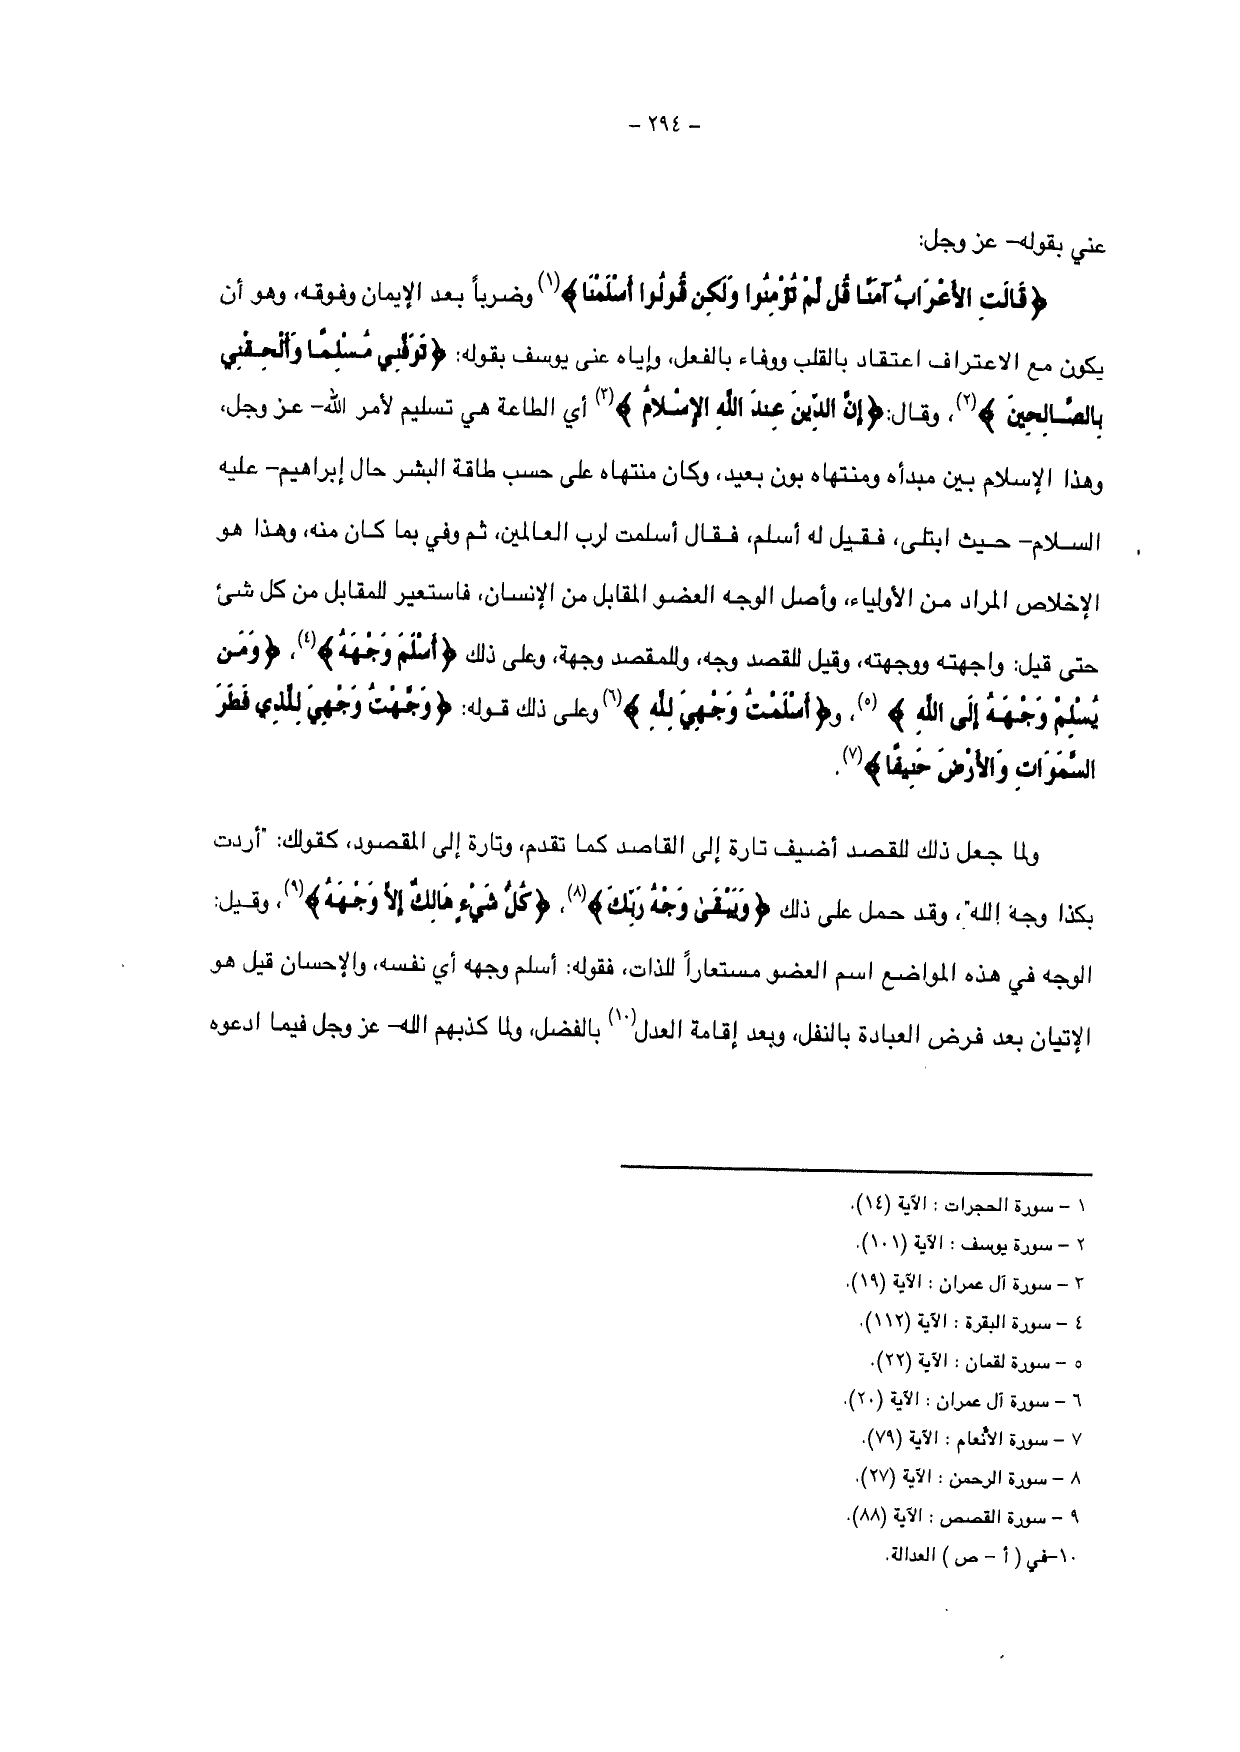 – ٢٩٤ –
عني بقوله– عز وجل:
﴿قَالَتِ الأَعْرَابُ آمَنَّا قُل لَّمْ تُؤْمِنُوا وَلَكِن قُولُوا أَسْلَمْنَا﴾(١) وضرباً بعد الإيمان وفوقه، وهو أن
يكون مع الاعتراف اعتقاد بالقلب ووفاء بالفعل، وإياه عنى يوسف بقوله: ﴿تَوَفَّنِي مُسْلِمًا وَأَلْحِقْنِي
بِالصَّالِحِينَ ﴾(٢)، وقال:﴿إِنَّ الدِّينَ عِندَ اللَّهِ الإِسْلامُ ﴾(٣) أي الطاعة هي تسليم لأمر الله– عز وجل،
وهذا الإسلام بين مبدأه ومنتهاه بون بعيد، وكان منتهاه على حسب طاقة البشر حال إبراهيم– عليه
السلام– حيث ابتلى، فقيل له أسلم، فقال أسلمت لرب العالمين، ثم وفي بما كان منه، وهذا هو
الإخلاص المراد من الأولياء، وأصل الوجه العضو المقابل من الإنسان، فاستعير للمقابل من كل شئ
حتى قيل: واجهته ووجهته، وقيل للقصد وجه، وللمقصد وجهة، وعلى ذلك ﴿أَسْلَمَ وَجْهَهُ﴾(٤)، ﴿وَمَن
يُسْلِمْ وَجْهَهُ إِلَى اللَّهِ ﴾ (٥)، و﴿أَسْلَمْتُ وَجْهِيَ لِلَّهِ ﴾(٦) وعلى ذلك قوله: ﴿وَجَّهْتُ وَجْهِيَ لِلَّذِي فَطَرَ
السَّمَوَاتِ وَالأَرْضَ حَنِيفًا﴾(٧).
ولما جعل ذلك للقصد أضيف تارة إلى القاصد كما تقدم، وتارة إلى المقصود، كقولك: "أردت
بكذا وجه الله"، وقد حمل على ذلك ﴿وَيَبْقَىٰ وَجْهُ رَبِّكَ﴾(٨)، ﴿كُلُّ شَيْءٍ هَالِكٌ إِلاَّ وَجْهَهُ﴾(٩)، وقيل:
الوجه في هذه المواضع اسم العضو مستعاراً للذات، فقوله: أسلم وجهه أي نفسه، والإحسان قيل هو
الإتيان بعد فرض العبادة بالنفل، وبعد إقامة العدل(١٠) بالفضل، ولما كذبهم الله– عز وجل فيما ادعوه
١ – سورة الحجرات : الآية (١٤).
٢ – سورة يوسف : الآية (١٠١).
٣ – سورة آل عمران : الآية (١٩).
٤ – سورة البقرة : الآية (١١٢).
٥ – سورة لقمان : الآية (٢٢).
٦ – سورة آل عمران : الآية (٢٠).
٧ – سورة الأنعام : الآية (٧٩).
٨ – سورة الرحمن : الآية (٢٧).
٩ – سورة القصص : الآية (٨٨).
١٠–في ( أ – ص ) العدالة.